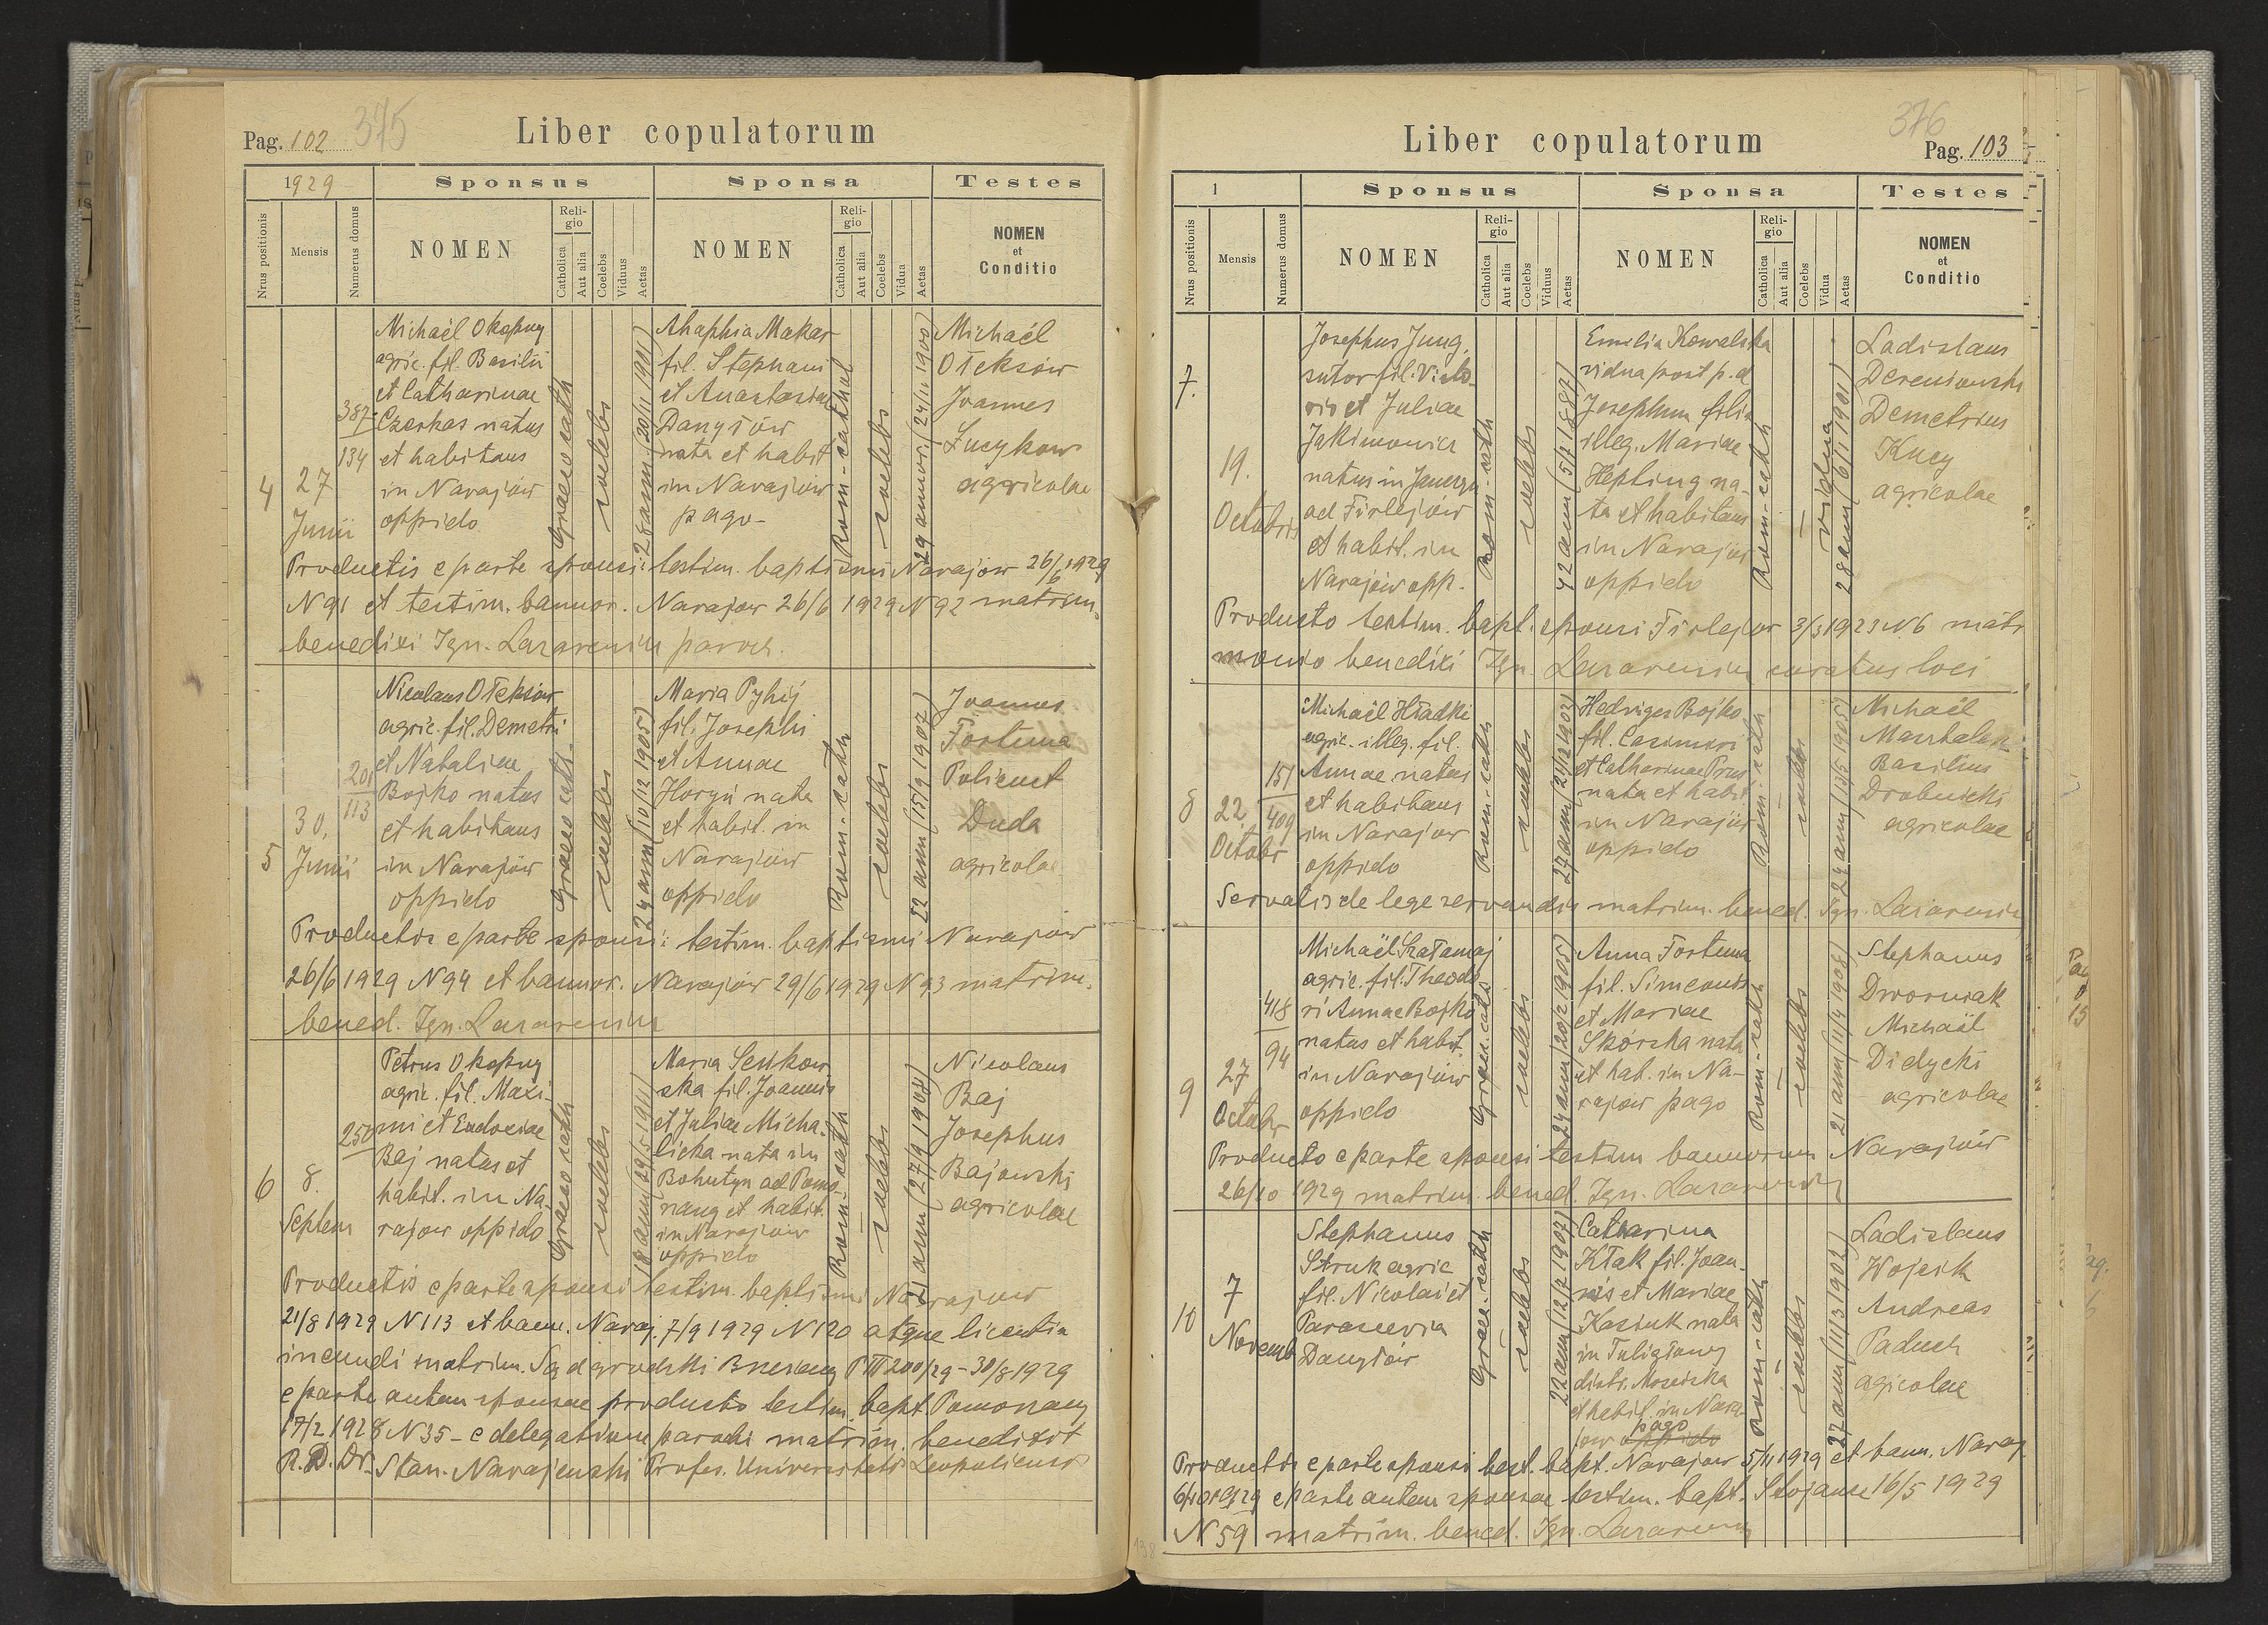 Pag. 102
375
Liber copulatorum
1929
Sponsus
Sponsa
Testes
Nrus positionis
Mensis
Numerus domus
NOMEN
Religio
Catholica
Aut alia
Coelebs
Viduus
Aetas
NOMEN
Religio
Catholica
Aut alia
Coelebs
Vidua
Aetas
NOMEN
et
Conditio
4
27
Junii
387
134
Michaël Okapuy
agric. fil. Basilii
et Catharinae
Czerkas natus
et habitans
in Narajów
oppido
Graeco cath
coelebs
28 ann (20/11 1901)
Ahaphia Makar
fil. Stephani
et Anastasiae
Danyłów
nata et habit
in Narajów
pago
Rom-cathol
coelebs
29 annor. (24/11 1900)
Michaël
Ołeksów
Joannes
Łucykow
agricolae
Productis e parte sponsi: testim. baptismi Narajow 26/6 1929
N 91 et testim. bannor. Narajow 26/6 1929 N 92 matrim.
benedixi Ign. Lazarewicz paroch.
5
30,
Junii
20
113
Nicolaus Ołeksów
agric. fil. Demetri
et Nataliae
Bojko natus
et habitans
in Narajów
oppido
Graeco cath.
coelebs
24 ann (10/12 1905)
Maria Pyhij
fil. Josephi
et Annae
Horyń nata
et habit. in
Narajów
oppido
Rom.-cath
coelebs
22 ann (15/9 1907)
Joannes
Fortuna
Policuct
Duda
agricolae
Productis e parte sponsi: testim. baptismi Narajów
26/6 1929 N 94 et bannor. Narajów 29/6 1929 N 93 matrim.
bened. Ign. Lazarewicz
6
8.
Septem
250
Petrus Okapuy
agric. fil. Maxi-
mi et Eudociae
Baj natus et
habit. in Na-
rajow oppido
Graeco cath
coelebs
18 ann (29/5 1911)
Maria Senkow
ska fil. Joannis
et Juliae Micha-
licka nata in
Bohutyn ad Pomo-
rzany et habit.
in Narajow
oppido
Rom.-cath
coelebs
21 ann (27/9 1908)
Nicolaus
Baj
Josephus
Bajowski
agricolae
Productis e parte sponsi testim. baptismi Narajow
21/8 1929 N 113 et bann. Naraj. 7/9 1929 N 120 atque licentia
ineundi matrim. Sąd grodzki Brzeżany P III 200/29 - 30/8 1929
e parte autem sponsae producto testim. bapt. Pomorzany
17/2 1928 N 35 - e delegatione parochi matrim. benedixit
R. D. Dr. Stan. Narajewski Profes. Universitatis Leopoliensis
376
Pag. 103
Liber copulatorum
1
Sponsus
Sponsa
Testes
Nrus positionis
Mensis
Numerus domus
NOMEN
Religio
Catholica
Aut alia
Coelebs
Viduus
Aetas
NOMEN
Religio
Catholica
Aut alia
Coelebs
Vidua
Aetas
NOMEN
et
Conditio
7.
19.
Octobris
Josephus Jung,
sutor fil. Victo-
ris et Juliae
Jakimowicz
natus in
ad Firlejów
et habit. in
Narajów opp.
Rom-cath
coelebs
42 ann (5/7 1887)
Emilia Kowalska
vidua post p. d.
Josephum filia
illeg. Mariae
Hepting na-
ta et habitans
in Narajów
oppido
Rom-cath
vidua
28 ann (6/1 1901)
Ladislaus
Dereniowski
Demetrius
Kucy
agricolae
Producto testim. bapt. sponsi Firlejow 3/3 1923 N 6 matri
monio benedixi Ign. Lazarewicz curatus loci
8
22
Octobr
151
409
Michaël Hładki
agric. illeg. fil.
Annae natus
et habitans
in Narajow
oppido
Rom-cath
coelebs
27 ann (21/12 1902)
Hedviges Bojko
fil. Casimiri
et Catharinae Prus
nata et habit
in Narajów
oppido
Rom-cath
coelebs
24 ann (13/5 1905)
Michaël
Basilius
Drobnicki
agricolae
Servatis de lege servandis matrim. bened. Ign. Lazarewicz
9
27
Octobr
418
94
Michaël Szałamaj
agric. fil. Theodo
ri Annae Bojko
natus et habit.
in Narajów
oppido
Graeco-cath
coelebs
24 ann (20/2 1905)
Anna Fortuna
fil. Simeonis
et Mariae
Skórska nata
et hab. in Na-
rajow pago
Rom-cath
coelebs
21 ann (11/4 1908)
Stephanus
Dworniak
Michaël
Didycki
agricolae
Producto e parte sponsi testim bannorum Narajów
26/10 1929 matrim. bened. Ign. Lazarewicz
10
7
Novemb
Stephanus
Struk agric
fil. Nicolai et
Parascevia
Danyłów
Graeco-cath
coelebs
22 ann (12/7 1907)
Catharina
Kłak fil. Joan-
nis et Mariae
Kasiuk nata
in Tuligłowy
distr. Mościska
et habit. in Nara-
jow oppido
pago
Rom-cath
coelebs
27 ann (11/3 1902)
Ladislaus
Wojcik
Andreas
Paduch
agricolae
Productis e parte sponsi test. bapt. Narajow 5/11 1929 et bann. Naraj.
6/10 1929 e parte autem sponsae testim. bapt. Stojance 16/5 1929
N 59 matrim. bened. Ign. Lazarewicz
198